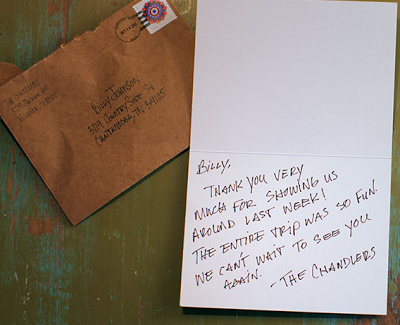 Billy Johnson,
3719 Countryside St
Chattanooga, TN 37405
Billy,
Thank you very
much for showing us
around last week!
The entire trip was so fun.
We can't wait to see you
again.
- The Chandlers